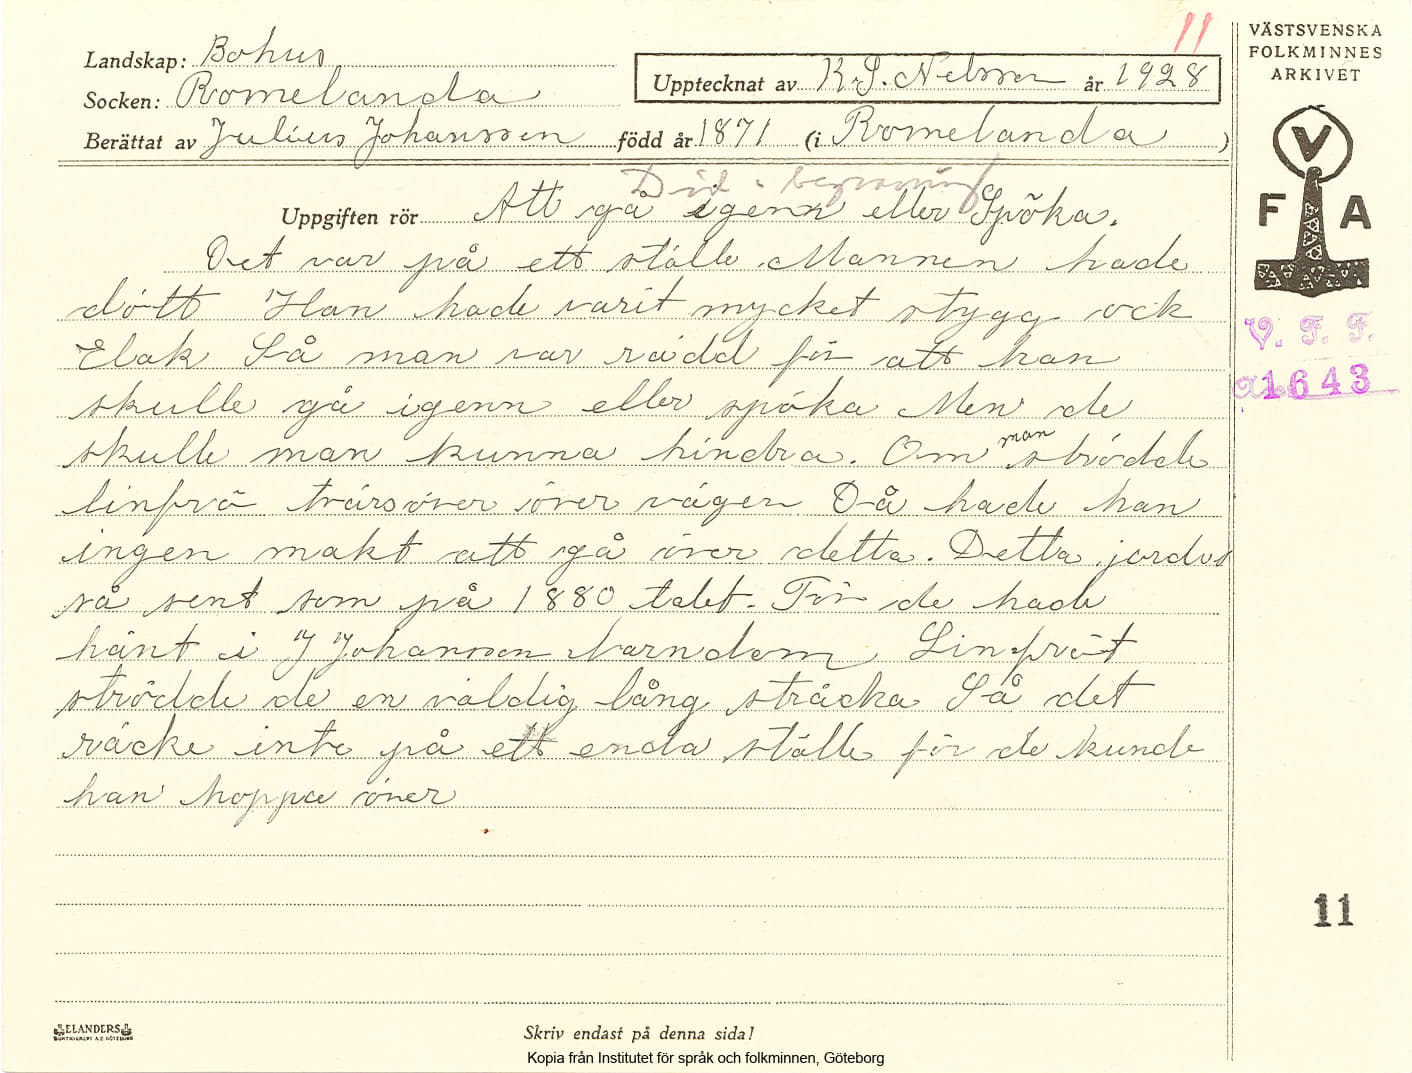 11
VÄSTSVENSKA
FOLKMINNES
ARKIVET
Landskap: Bohus
Socken: Romelanda
Upptecknat av K.S. Nelsson år 1928
Berättat av Julius Johansson född år 1871 (i Romelanda )
V
F A
Död o begravning
Uppgiften rör Att gå igenn eller Spöka.
Det var på ett ställe Mannen hade
dött Han hade varit mycket stygg ock
Elak Så man var rädd för att han
skulle gå igenn eller spöka Men de
skulle man kunna hindra. Om man strödde
linfrö tvärsöver över vägen Då hade han
ingen makt att gå över detta. Detta jordes
så sent som på 1880 talet. För de hade
hänt i J Johansson barndom Linfröt
strödde de en väldig lång sträcka Så det
räcke inte på ett enda ställe för de kunde
han hoppa över
V. F. F.
1643
11
ELANDERS
Skriv endast på denna sida!
Kopia från Institutet för språk och folkminnen, Göteborg